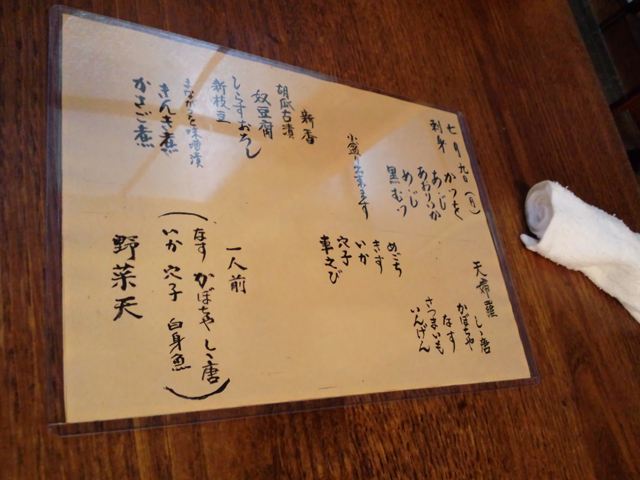 七月九日(月)
刺身
かつを
あじ
あおりいか
めじ
黒むつ
小盛り出来ます
新香
胡瓜古漬
奴豆腐
しらすおろし
新枝豆
まながつを味噌漬
きんき煮
かさご煮
天婦羅
しゝ唐
かぼちゃ
なす
さつまいも
いんげん
めごち
きす
いか
穴子
車えび
一人前
(なす かぼちゃ しゝ唐
いか 穴子 白身魚)
野菜天